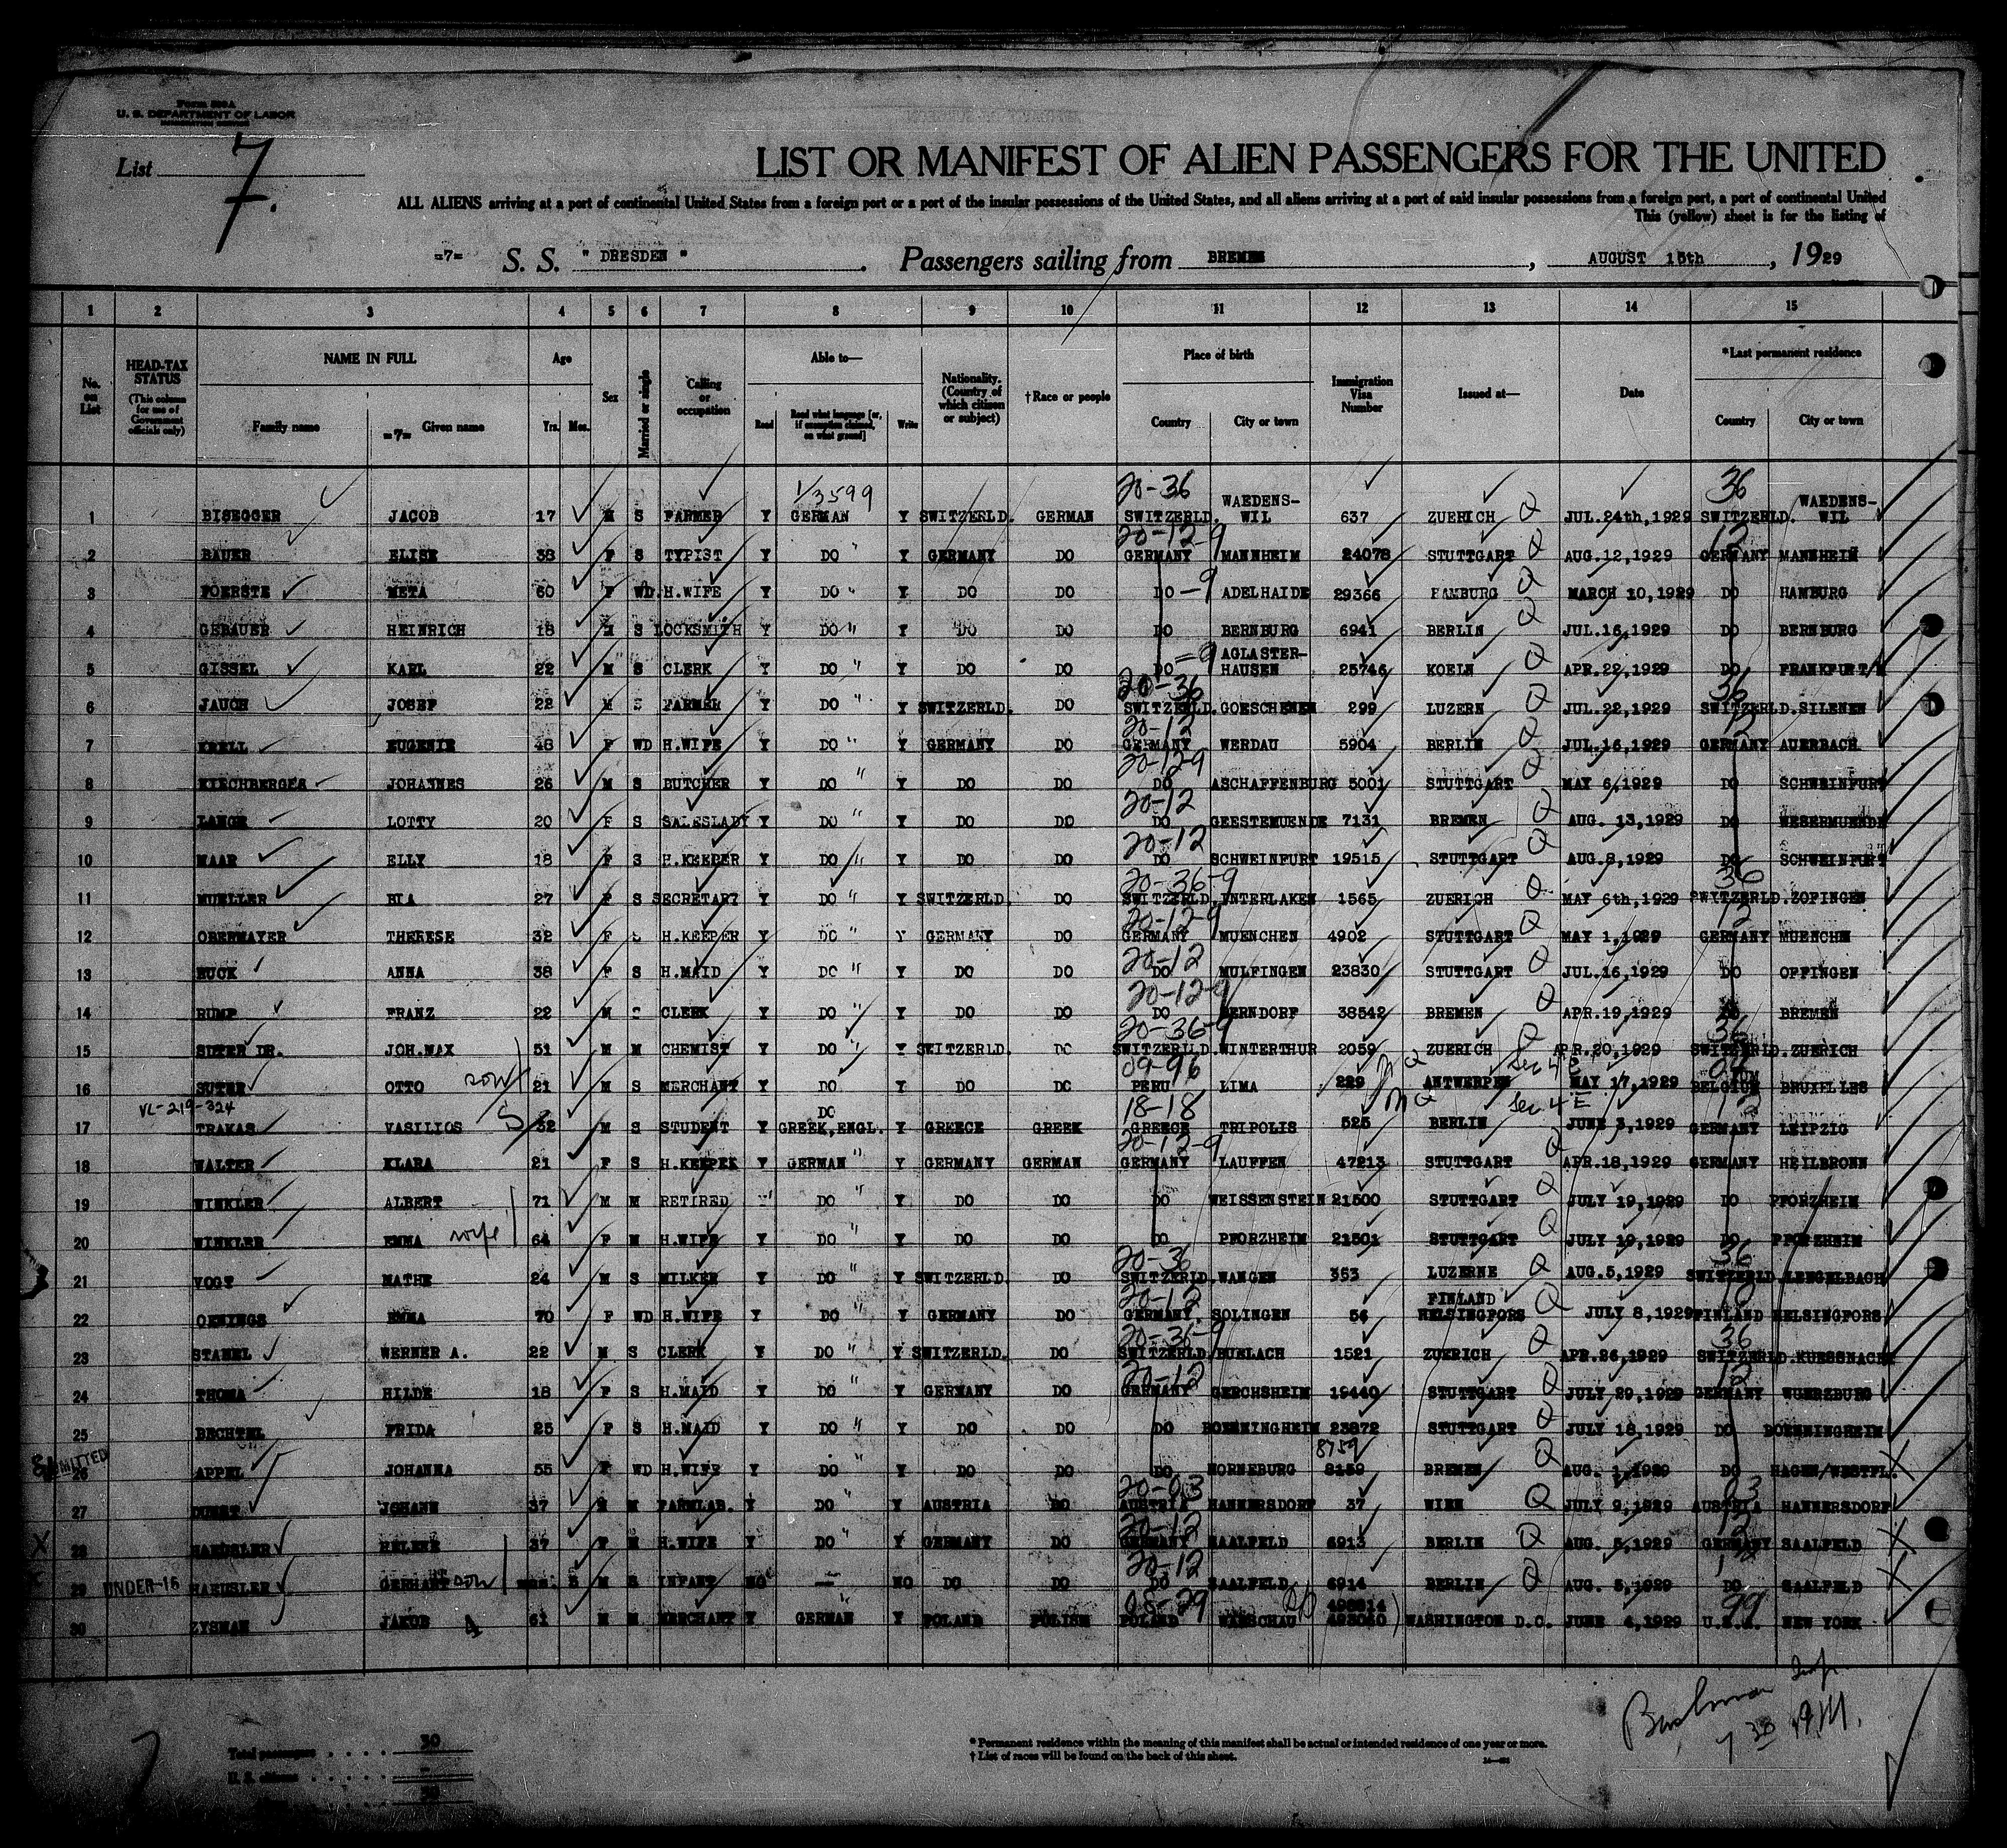 Form 500A
U. S. DEPARTMENT OF LABOR
List 7.
LIST OR MANIFEST OF ALIEN PASSENGERS FOR THE UNITED
ALL ALIENS arriving at a port of continental United States from a foreign port or a port of the insular possessions of the United States, and all aliens arriving at a port of said insular possessions from a foreign port, a port of continental United
This (yellow) sheet is for the listing of
=7= S. S. " DRESDEN " . Passengers sailing from BREMEN , AUGUST 15th , 1929
1 2 3 4 5 6 7 8 9 10 11 12 13 14 15
No. on List
HEAD-TAX STATUS (This column for use of Government officials only)
NAME IN FULL Family name =7= Given name
Age Yrs. Mos.
Sex
Married or single
Calling or occupation
Able to— Read Read what language [or, if exemption claimed, on what ground] Write
Nationality. (Country of which citizen or subject)
† Race or people
Place of birth Country City or town
Immigration Visa Number
Issued at—
Date
* Last permanent residence Country City or town
1/3599 20-36 36
1 BISEGGER JACOB 17 M S FARMER Y GERMAN Y SWITZERLD. GERMAN SWITZERLD. WAEDENS-WIL 637 ZUERICH Q JUL.24th,1929 SWITZERLD. WAEDENS-WIL
20-12-9 12
2 BAUER ELISE 38 F S TYPIST Y DO " Y GERMANY DO GERMANY MANNHEIM 24078 STUTTGART Q AUG.12,1929 GERMANY MANNHEIM
3 FOERSTE META 60 F WD. H.WIFE Y DO " Y DO DO DO -9 ADELHAIDE 29366 HAMBURG Q MARCH 10,1929 DO HAMBURG
4 GEBAUER HEINRICH 18 M S LOCKSMITH Y DO " Y DO DO DO BERNBURG 6941 BERLIN Q JUL.16,1929 DO BERNBURG
5 GISSEL KARL 22 M S CLERK Y DO " Y DO DO DO =9 AGLASTER-HAUSEN 25746 KOELN Q APR.22,1929 DO FRANKFURT/M
20-36 36
6 JAUCH JOSEF 22 M S FARMER Y DO " Y SWITZERLD. DO SWITZERLD. GOESCHENEN 299 LUZERN Q JUL.22,1929 SWITZERLD. SILENEN
20-12 12
7 KRELL EUGENIE 48 F WD H.WIFE Y DO " Y GERMANY DO GERMANY WERDAU 5904 BERLIN Q JUL.16,1929 GERMANY AUERBACH
20-12-9
8 KIRCHBERGER JOHANNES 26 M S BUTCHER Y DO " Y DO DO DO ASCHAFFENBURG 5001 STUTTGART Q MAY 6,1929 DO SCHWEINFURT
20-12
9 LANGE LOTTY 20 F S SALESLADY Y DO " Y DO DO DO GEESTEMUENDE 7131 BREMEN Q AUG. 13,1929 DO WESERMUENDE
20-12
10 MAAR ELLY 18 F S H.KEEPER Y DO " Y DO DO DO SCHWEINFURT 19515 STUTTGART Q AUG.8,1929 DO SCHWEINFURT
20-36-9 36
11 MUELLER BIA 27 F S SECRETARY Y DO " Y SWITZERLD. DO SWITZERLD. INTERLAKEN 1565 ZUERICH Q MAY 6th,1929 SWITZERLD. ZOFINGEN
20-12-9 12
12 OBERMAYER THERESE 32 F S H.KEEPER Y DO " Y GERMANY DO GERMANY MUENCHEN 4902 STUTTGART Q MAY 1,1929 GERMANY MUENCHN
20-12
13 RUCK ANNA 38 F S H.MAID Y DO " Y DO DO DO MULFINGEN 23830 STUTTGART Q JUL.16,1929 DO OPFINGEN
20-12-9
14 RUMP FRANZ 22 M S CLERK Y DO " Y DO DO DO BERNDORF 38542 BREMEN Q APR.19,1929 DO BREMEN
20-36-9 36
15 SUTER DR. JOH.MAX 51 M M CHEMIST Y DO " Y SWITZERLD. DO SWITZERLD. WINTERTHUR 2059 ZUERICH Q APR.20,1929 SWITZERLD. ZUERICH
09-96 Sec 4E
16 SUTER OTTO son 21 M S MERCHANT Y DO Y DO DO PERU LIMA 229 NQ ANTWERPEN MAY 17,1929 BELGIUM BRUXELLES
VL-219-324 18-18 NQ Sec 4E 12
17 TRAKAS VASILIOS S 32 M S STUDENT Y DO GREEK,ENGL. Y GREECE GREEK GREECE TRIPOLIS 525 BERLIN JUNE 3,1929 GERMANY LEIPZIG
20-12-9
18 WALTER KLARA 21 F S H.KEEPER Y GERMAN " Y GERMANY GERMAN GERMANY LAUFFEN 47213 STUTTGART Q APR.18,1929 GERMANY HEILBRONN
19 WINKLER ALBERT 71 M M RETIRED Y DO " Y DO DO DO WEISSENSTEIN 21500 STUTTGART Q JULY 19,1929 DO PFORZHEIM
20 WINKLER EMMA wife 64 F M H.WIFE Y DO " Y DO DO DO PFORZHEIM 21501 STUTTGART Q JULY 19,1929 DO PFORZHEIM
20-36 36
21 VOGT MATHE 24 M S MILKER Y DO " Y SWITZERLD. DO SWITZERLD. WANGEN 353 LUZERNE Q AUG.5,1929 SWITZERLD. LENGELBACH
20-12
22 OENINGS EMMA 70 F WD H.WIFE Y DO " Y GERMANY DO GERMANY. SOLINGEN 56 FINLAND HELSINGFORS Q JULY 8,1929 FINLAND HELSINGFORS
20-36-9 36
23 STAHEL WERNER A. 22 M S CLERK Y DO " Y SWITZERLD. DO SWITZERLD. BUELACH 1521 ZUERICH Q APR.26,1929 SWITZERLD. KUESSNACHT
20-12 12
24 THOMA HILDE 18 F S H.MAID Y DO " Y GERMANY DO GERMANY GERCHSHEIM 19440 STUTTGART Q JULY 29,1929 GERMANY WUERZBURG
25 BECHTEL FRIDA 25 F S H.MAID Y DO " Y DO DO DO BOENNINGHEIM 23872 STUTTGART Q JULY 18,1929 DO BOENNINGHEIM
ADMITTED 8759
26 APPEL JOHANNA 55 F WD H.WIFE Y DO " Y DO DO DO HORNEBURG 8159 BREMEN Q AUG. 1,1929 DO HAGEN/WESTFL. X
20-03 03
27 DUNST JOHANN 37 M M FARMLAB. Y DO " Y AUSTRIA DO AUSTRIA HANNERSDORF 37 WIEN Q JULY 9,1929 AUSTRIA HANNERSDORF
20-12 12
X 28 HAEUSLER HELENE 37 F M H.WIFE Y DO " Y GERMANY DO GERMANY SAALFELD 6913 BERLIN Q AUG. 5,1929 GERMANY SAALFELD X
20-12
29 UNDER-16 HAEUSLER GERHART son MOS. 8 M S INFANT NO — NO DO DO DO SAALFELD 6914 BERLIN Q AUG. 5,1929 DO SAALFELD X
08-29 99
30 ZYSMAN JAKOB 4 61 M M MERCHANT Y GERMAN " Y POLAND POLISH POLAND WARSCHAU WASHINGTON D.C. JUNE 4,1929 U.S.A. NEW YORK
Total passengers . . . . 30
U. S. citizens . . . . . -
30
* Permanent residence within the meaning of this manifest shall be actual or intended residence of one year or more.
† List of races will be found on the back of this sheet.